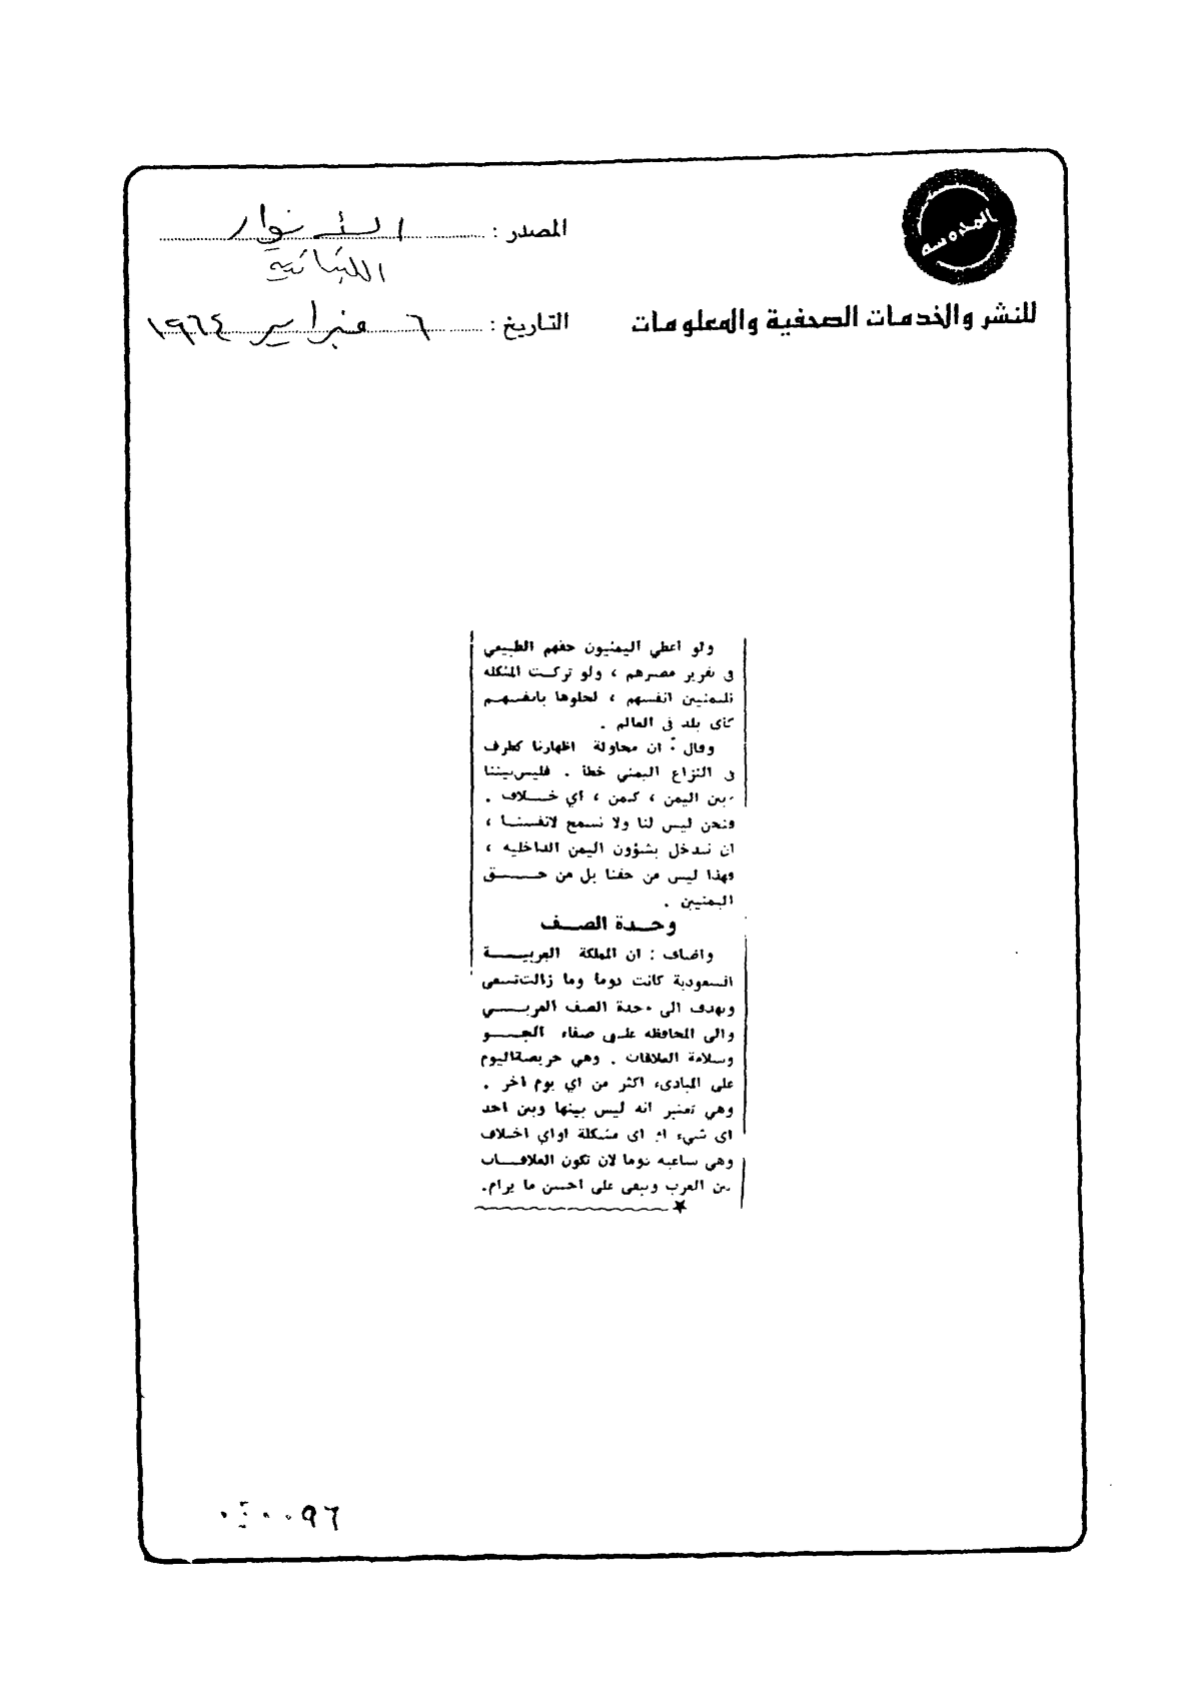 المدوسه
للنشر والخدمات الصحفية والمعلومات
المصدر : الأنوار
اللبنانية
التاريخ : ٦ فبراير ١٩٦٤
ولو اعطي اليمنيون حقهم الطبيعي
في تقرير مصيرهم ، ولو تركت المشكلة
لليمنيين انفسهم ، لحلوها بانفسهم
كأي بلد في العالم .
وقال : ان محاولة اظهارنا كطرف
في النزاع اليمني خطأ . فليس بيننا
وبين اليمن ، كيمن ، أي خلاف .
ونحن ليس لنا ولا نسمح لانفسنا ،
ان نتدخل بشؤون اليمن الداخلية ،
وهذا ليس من حقنا بل من حق
اليمنيين .
وحدة الصف
واضاف : ان المملكة العربية
السعودية كانت دوما وما زالت تسعى
وتهدف الى وحدة الصف العربي
والى المحافظة على صفاء الجو
وسلامة العلاقات . وهي حريصة اليوم
على المبادىء اكثر من اي يوم اخر .
وهي تعتبر انه ليس بينها وبين احد
اي شيء او اي مشكلة او اي اختلاف
وهي ساعية دوما لان تكون العلاقات
بين العرب وتبقى على احسن ما يرام .